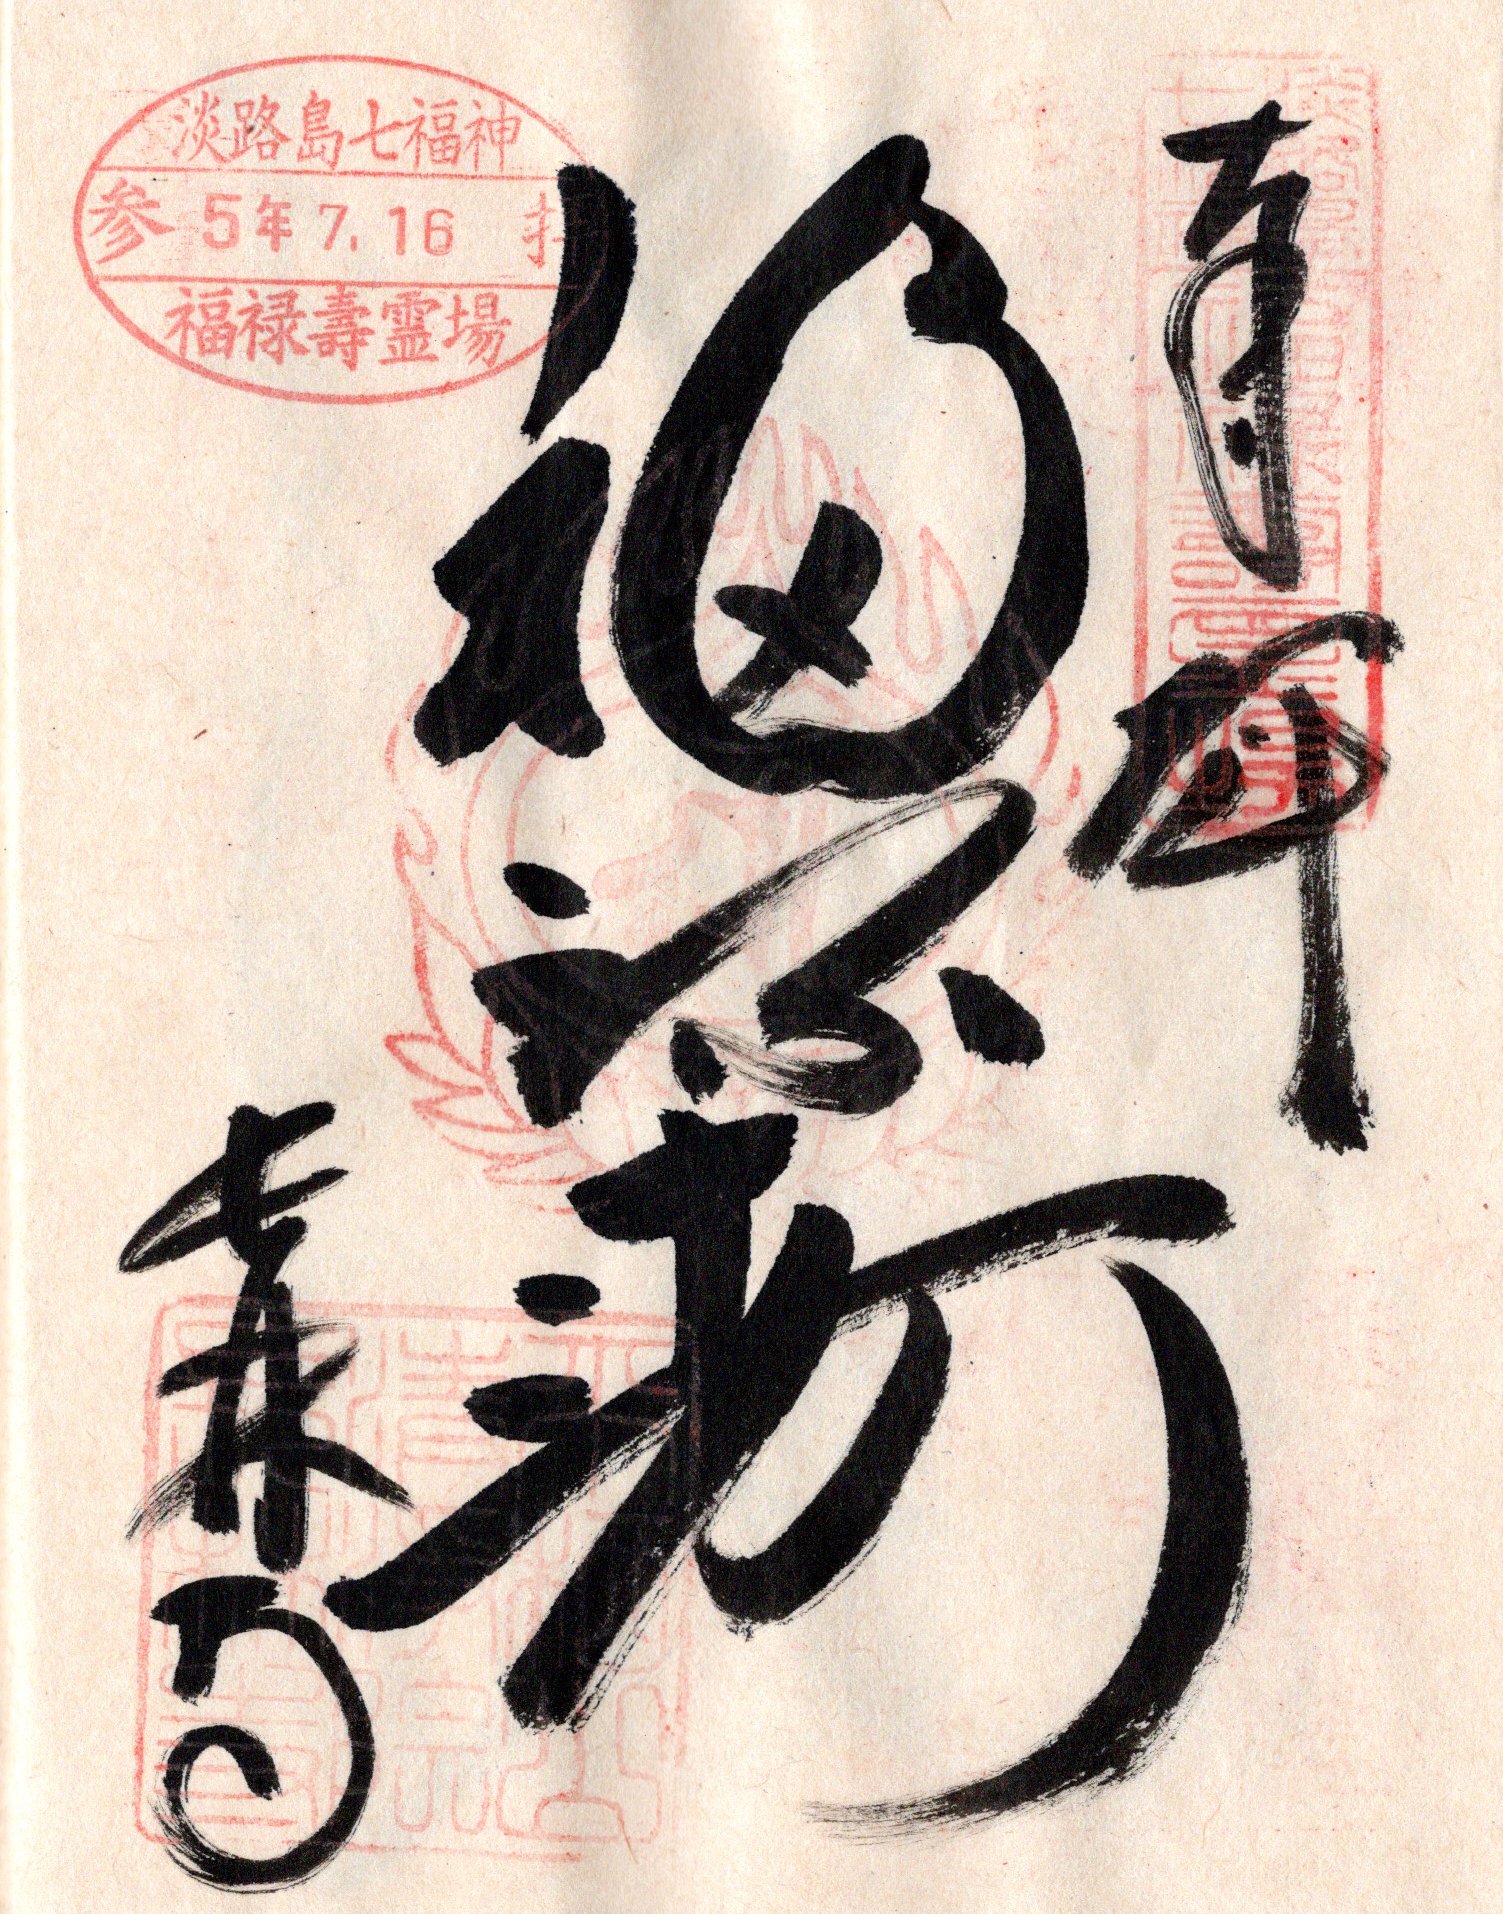 奉拝
淡路島七福神
参 5年 7.16 拝
福禄壽霊場
福禄寿
長林寺